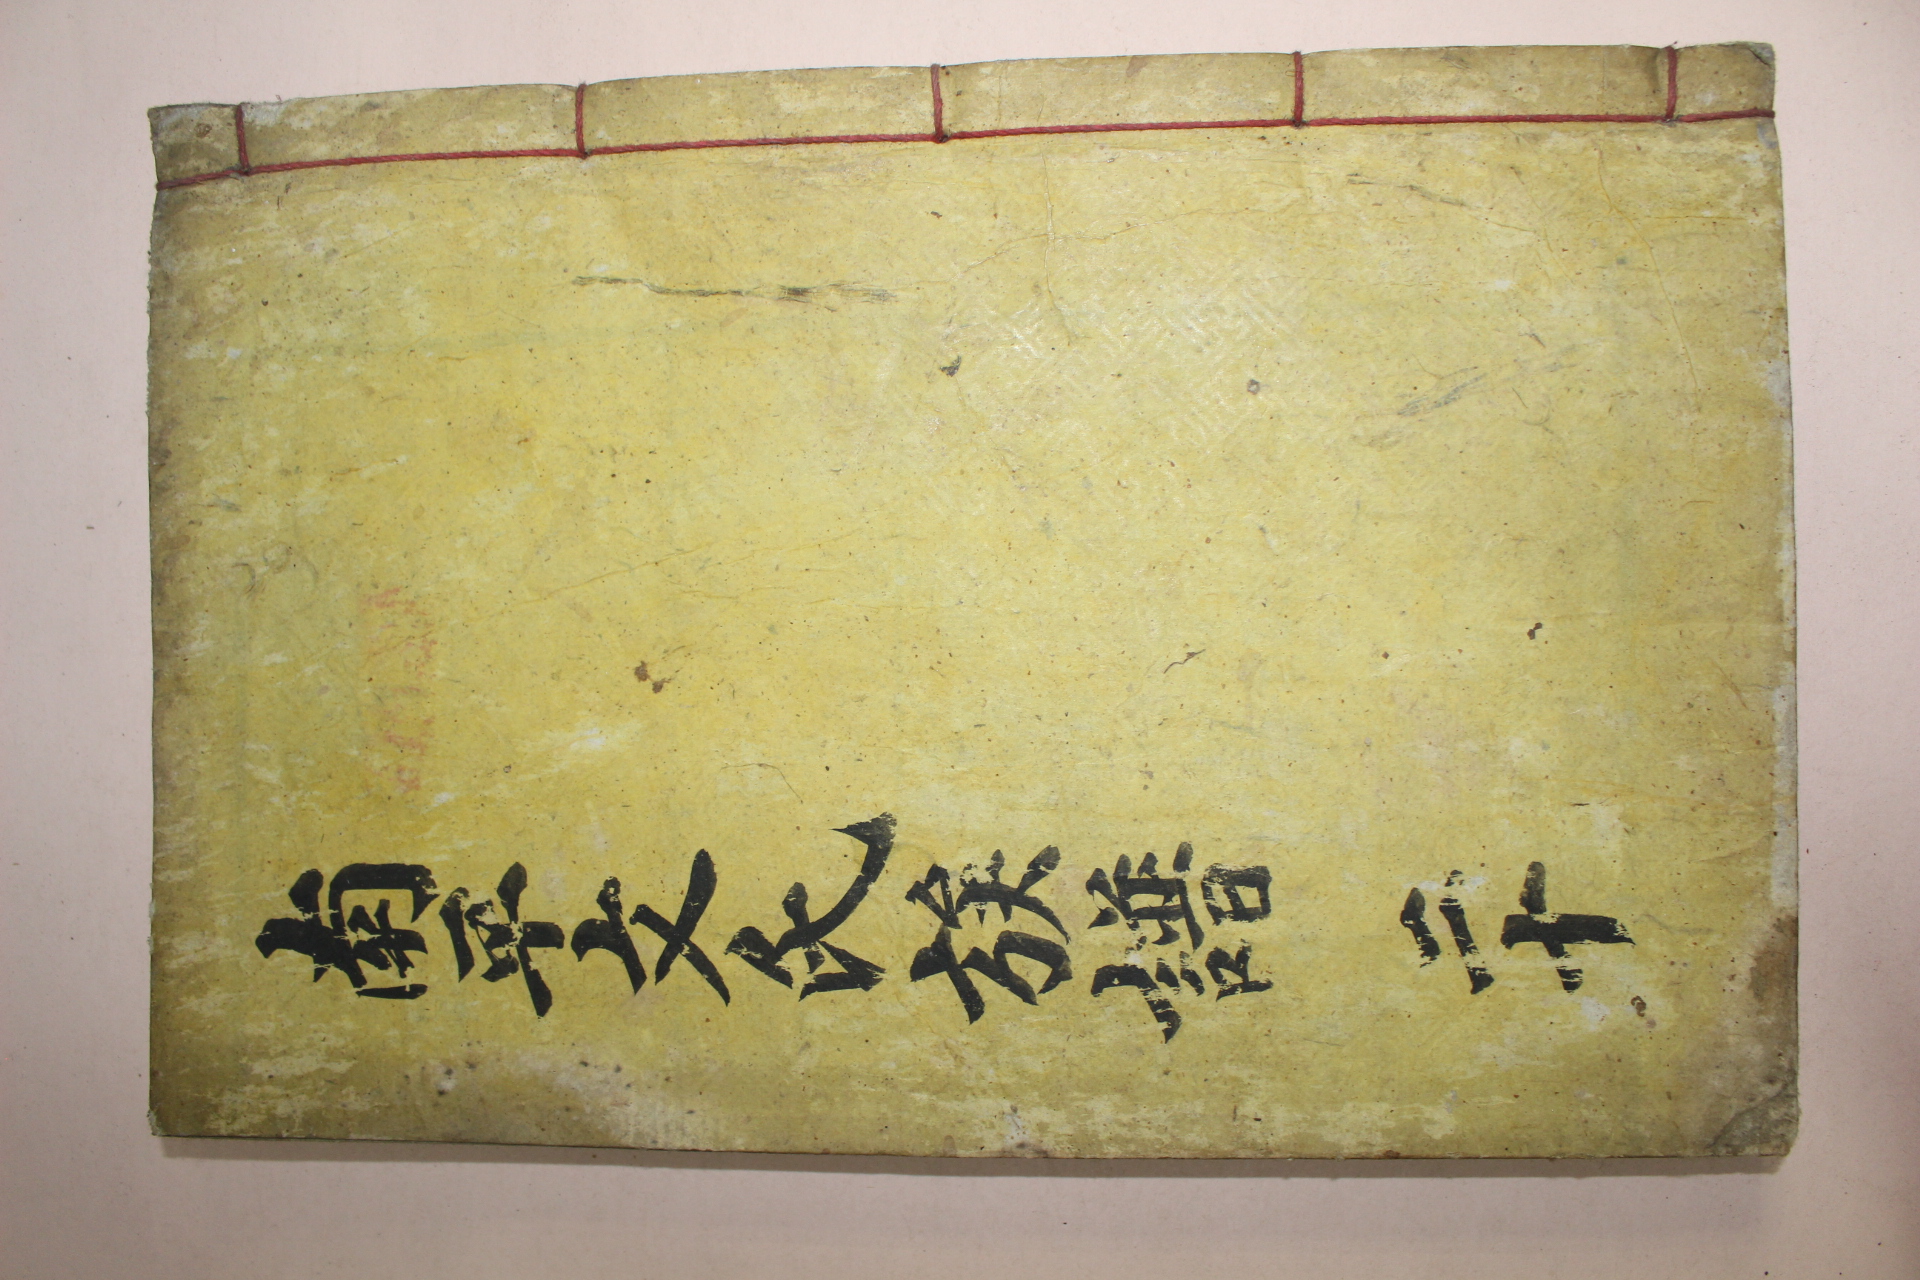 南平文氏族譜 二十